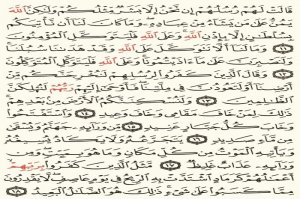 قَالَتْ لَهُمْ رُسُلُهُمْ إِن نَّحْنُ إِلَّا بَشَرٌ مِّثْلُكُمْ وَلَٰكِنَّ ٱللَّهَ
يَمُنُّ عَلَىٰ مَن يَشَآءُ مِنْ عِبَادِهِۦ وَمَا كَانَ لَنَآ أَن نَّأْتِيَكُم
بِسُلْطَٰنٍ إِلَّا بِإِذْنِ ٱللَّهِ وَعَلَى ٱللَّهِ فَلْيَتَوَكَّلِ ٱلْمُؤْمِنُونَ
١١ وَمَا لَنَآ أَلَّا نَتَوَكَّلَ عَلَى ٱللَّهِ وَقَدْ هَدَىٰنَا سُبُلَنَا
وَلَنَصْبِرَنَّ عَلَىٰ مَآ ءَاذَيْتُمُونَا وَعَلَى ٱللَّهِ فَلْيَتَوَكَّلِ ٱلْمُتَوَكِّلُونَ
١٢ وَقَالَ ٱلَّذِينَ كَفَرُوا۟ لِرُسُلِهِمْ لَنُخْرِجَنَّكُم مِّنْ
أَرْضِنَآ أَوْ لَتَعُودُنَّ فِى مِلَّتِنَا فَأَوْحَىٰٓ إِلَيْهِمْ رَبُّهُمْ لَنُهْلِكَنَّ
ٱلظَّٰلِمِينَ ١٣ وَلَنُسْكِنَنَّكُمُ ٱلْأَرْضَ مِنۢ بَعْدِهِمْ
ذَٰلِكَ لِمَنْ خَافَ مَقَامِى وَخَافَ وَعِيدِ ١٤ وَٱسْتَفْتَحُوا۟
وَخَابَ كُلُّ جَبَّارٍ عَنِيدٍ ١٥ مِّن وَرَآئِهِۦ جَهَنَّمُ وَيُسْقَىٰ
مِن مَّآءٍ صَدِيدٍ ١٦ يَتَجَرَّعُهُۥ وَلَا يَكَادُ يُسِيغُهُۥ
وَيَأْتِيهِ ٱلْمَوْتُ مِن كُلِّ مَكَانٍ وَمَا هُوَ بِمَيِّتٍ وَمِن
وَرَآئِهِۦ عَذَابٌ غَلِيظٌ ١٧ مَّثَلُ ٱلَّذِينَ كَفَرُوا۟ بِرَبِّهِمْ
أَعْمَٰلُهُمْ كَرَمَادٍ ٱشْتَدَّتْ بِهِ ٱلرِّيحُ فِى يَوْمٍ عَاصِفٍ لَّا يَقْدِرُونَ
مِمَّا كَسَبُوا۟ عَلَىٰ شَىْءٍ ذَٰلِكَ هُوَ ٱلضَّلَٰلُ ٱلْبَعِيدُ ١٨